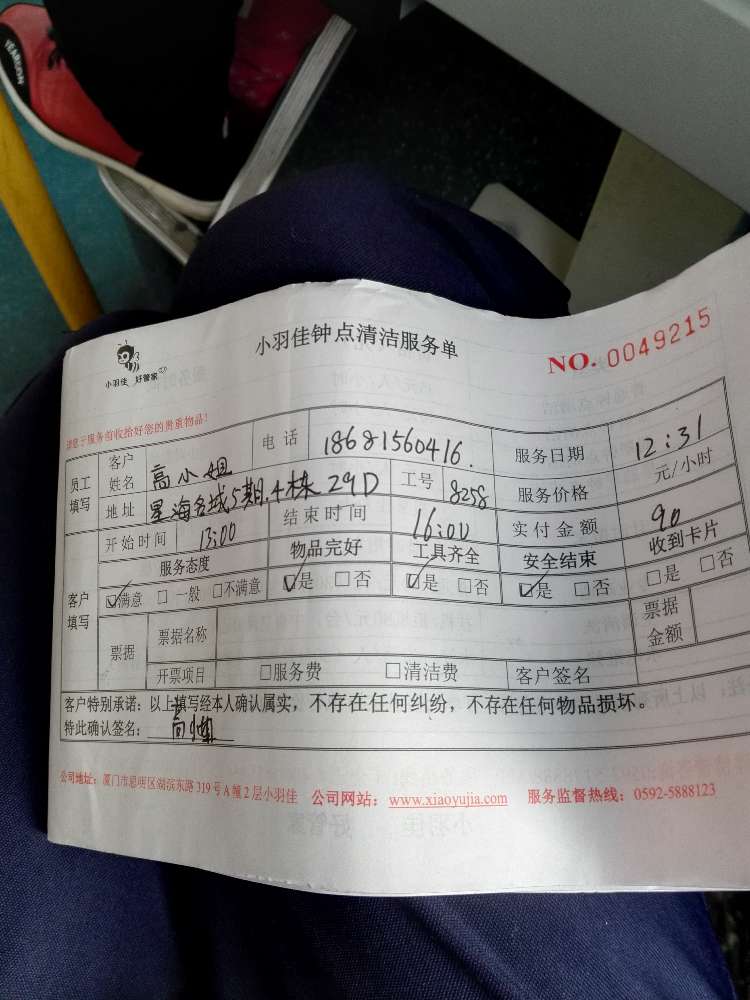 YEARCON
小羽佳 好管家
小羽佳钟点清洁服务单
NO. 0049215
请您于服务前收拾好您的贵重物品!
员工填写 客户姓名 高小姐 电话 18681560416. 服务日期 12:31
地址 星海名城5期.4栋29D 工号 8258 服务价格 元/小时
客户填写 开始时间 13:00 结束时间 16:00 实付金额 90
服务态度 物品完好 工具齐全 安全结束 收到卡片
☑满意 □一般 □不满意 ☑是 □否 ☑是 □否 ☑是 □否 □是 □否
票据 票据名称 票据金额
开票项目 □服务费 □清洁费 客户签名
客户特别承诺: 以上填写经本人确认属实,不存在任何纠纷,不存在任何物品损坏。
特此确认签名:
公司地址: 厦门市思明区湖滨东路319号A幢2层小羽佳 公司网站: www.xiaoyujia.com 服务监督热线: 0592-5888123